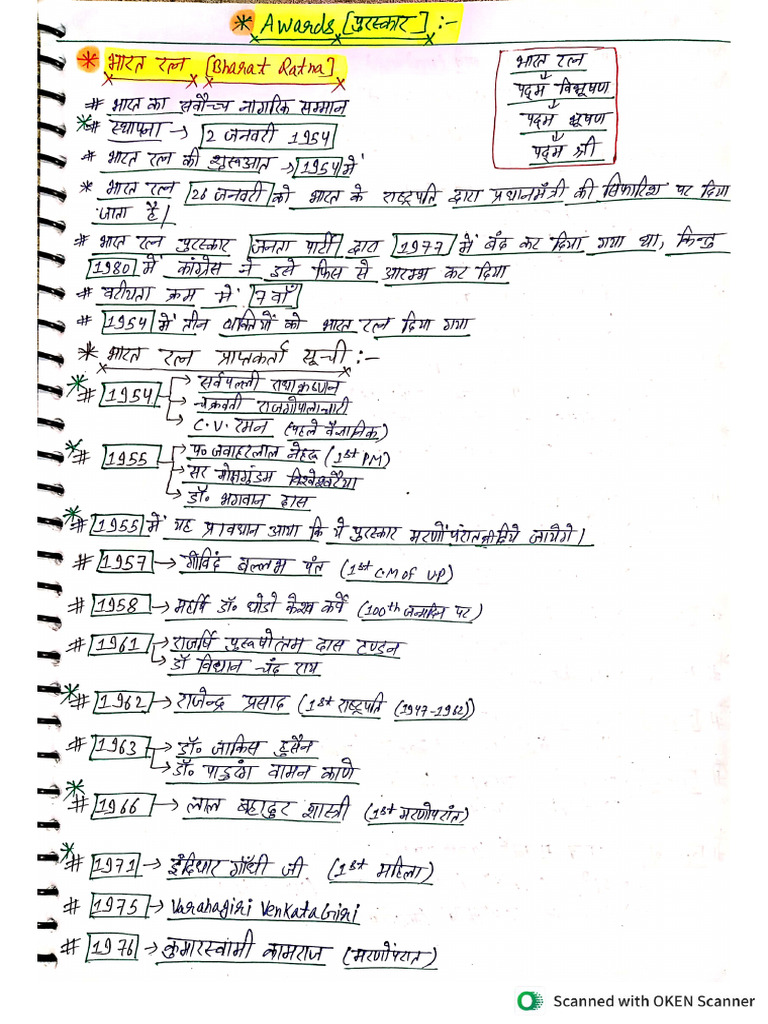 * Awards [पुरस्कार] :-
* भारत रत्न [Bharat Ratna]
भारत रत्न
पदम विभूषण
पदम भूषण
पदम श्री
# भारत का सर्वोच्च नागरिक सम्मान
*# स्थापना → 2 जनवरी 1954
# भारत रत्न की शुरूआत → 1954 में
* भारत रत्न 26 जनवरी को भारत के राष्ट्रपति द्वारा प्रधानमंत्री की सिफारिश पर दिया
जाता है।
# भारत रत्न पुरस्कार जनता पार्टी द्वारा 1977 में बंद कर दिया गया था, किन्तु
1980 में कांग्रेस ने इसे फिस से आरम्भ कर दिया
# वरीयता क्रम में 7 वाँ
# 1954 में तीन व्यक्तियों को भारत रत्न दिया गया
* भारत रत्न प्राप्तकर्ता सूची :-
*# 1954 → सर्वपल्ली राधाकृष्णन
→ चक्रवती राजगोपालाचारी
→ C.V. रमन (पहले वैज्ञानिक)
*# 1955 → प० जवाहरलाल नेहरू (1st PM)
→ सर मोक्षगुंडम विश्वेश्वरैया
→ डॉ० भगवान दास
*# 1955 में यह प्रावधान आया कि ये पुरस्कार मरणोंपरांत भी दिये जायेगे।
# 1957 → गोविंद बल्लभ पंत (1st C.M of UP)
# 1958 → महर्षि डॉ० धोंडो केशव कर्वे (100th जन्मदिन पर)
# 1961 → राजर्षि पुरूषोत्तम दास टण्डन
→ डॉ विधान चंद्र राय
*# 1962 → राजेन्द्र प्रसाद (1st राष्ट्रपति (1947-1962))
# 1963 → डॉ० जाकिस हुसैन
→ डॉ० पाडुरंग वामन काणे
*# 1966 → लाल बहादुर शास्त्री (1st मरणोपरांत)
*# 1971 → इंदिधार गाँधी जी (1st महिला)
# 1975 → Varahagiri Venkata Giri
# 1976 → कुमारस्वामी कामराज (मरणोंपरांत)
Scanned with OKEN Scanner